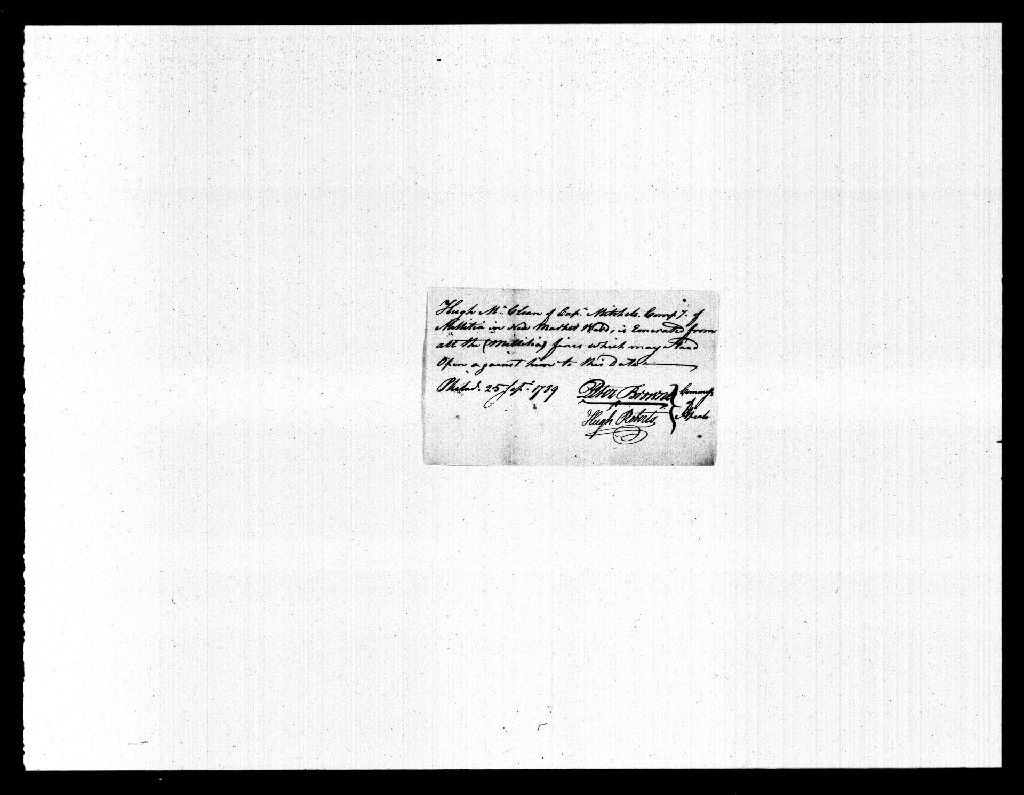 Hugh Mc. Clean of Capt. Mitchels Compy. of
Militia in New Market Ward, is Exonerated from
all the (Millitia) fines which may Stand
Open against him to this Date
Philad. 25 Sept. 1789 Peter Browne
Hugh Roberts
Commrs
of
Appeals